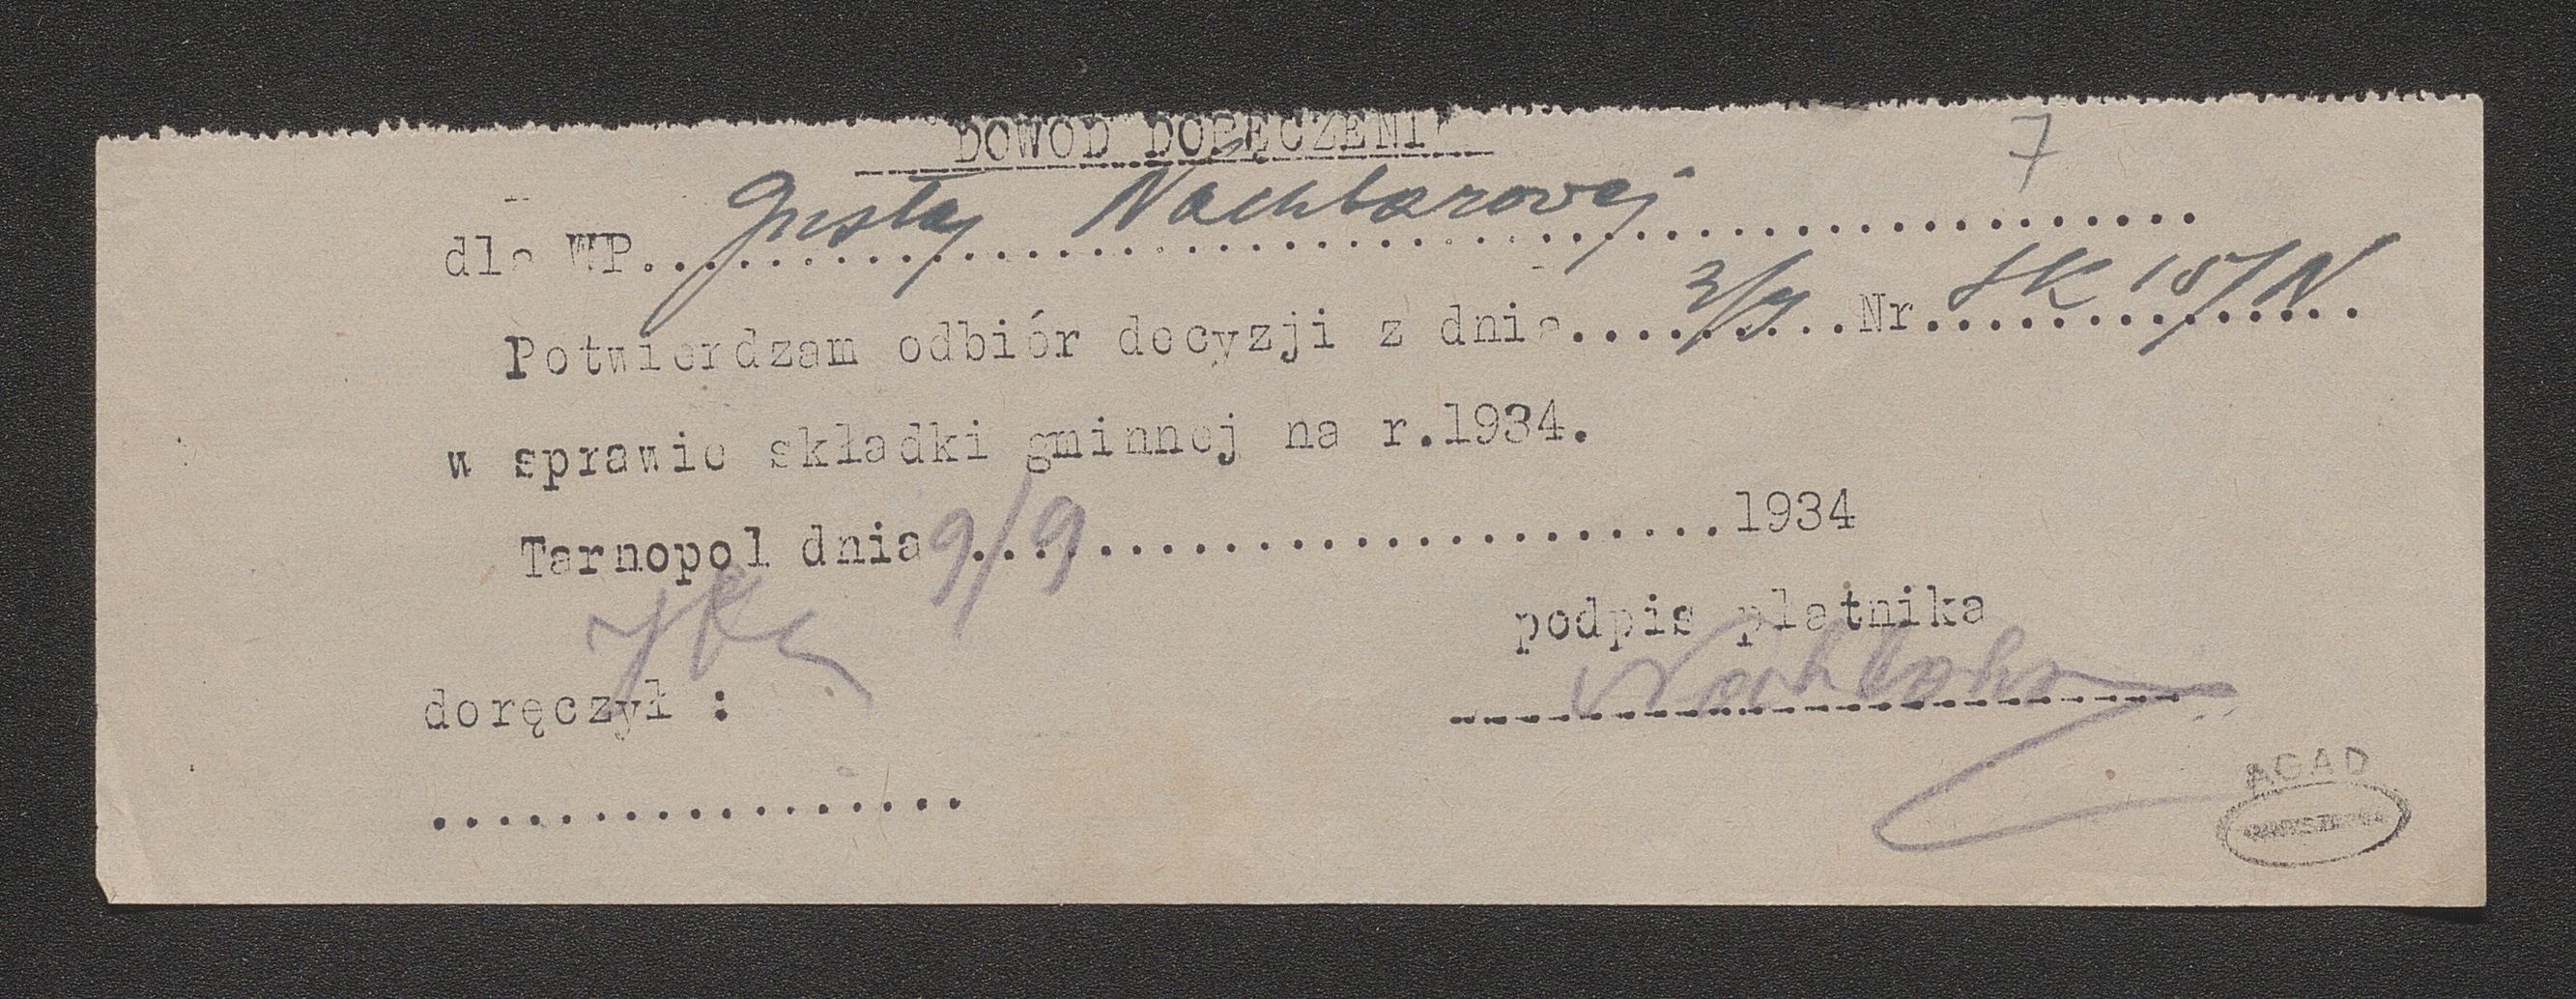 DOWÓD DORĘCZENI
7
dla WP. Gustaj Nachbarowej
Potwierdzam odbiór decyzji z dnia 3/9 Nr. SK 15/N
w sprawie składki gminnej na r.1934.
Tarnopol dnia 9/9 1934
podpis płatnika
doręczył :
AGAD